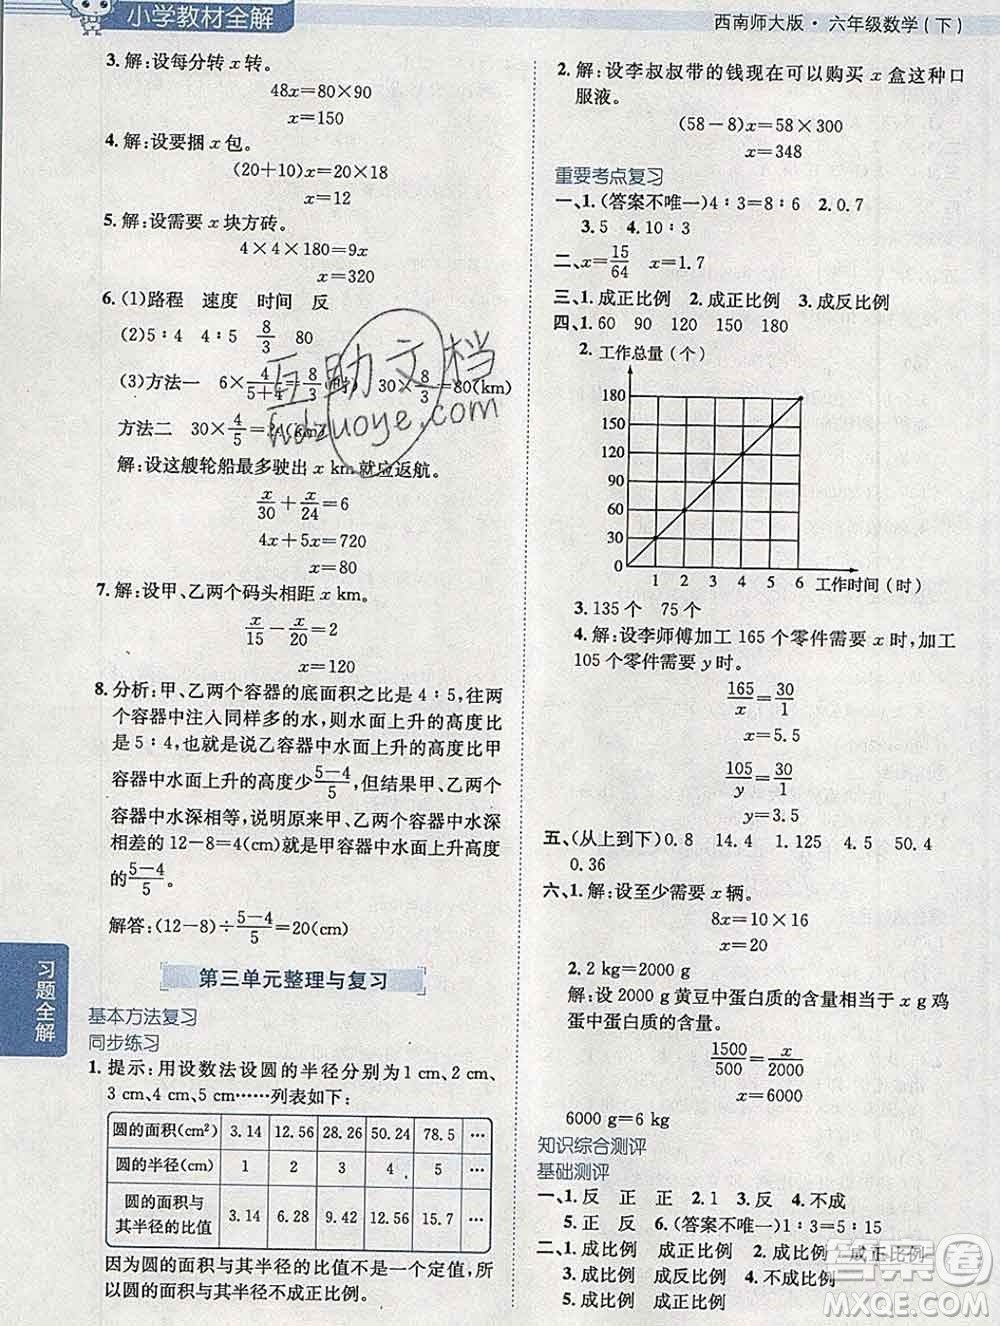 小学教材全解
西南师大版·六年级数学(下)
3. 解:设每分转 x 转。
48x=80×90
x=150
4. 解:设要捆 x 包。
(20+10)x=20×18
x=12
5. 解:设需要 x 块方砖。
4×4×180=9x
x=320
6. (1)路程 速度 时间 反
(2)5∶4 4∶5 8/3 80
(3)方法一 6×4/(5+4)=8/3(时) 30×8/3=80(km)
方法二 30×4/5=24(km)
解:设这艘轮船最多驶出 x km 就应返航。
x/30+x/24=6
4x+5x=720
x=80
7. 解:设甲、乙两个码头相距 x km。
x/15-x/20=2
x=120
8. 分析:甲、乙两个容器的底面积之比是 4∶5,往两
个容器中注入同样多的水,则水面上升的高度比
是 5∶4,也就是说乙容器中水面上升的高度比甲
容器中水面上升的高度少(5-4)/5,但结果甲、乙两个
容器中水深相等,这就说明原来甲、乙容器中水深
相差的 12-8=4(cm)就是甲容器中水面上升高度
的(5-4)/5。
解答:(12-8)÷(5-4)/5=20(cm)
习题全解
第三单元整理与复习
基本方法复习
同步练习
1. 提示:用设数法设圆的半径分别为 1 cm,2 cm,
3 cm,4 cm,5 cm……列表如下:
圆的面积(cm²) 3.14 12.56 28.26 50.24 78.5 …
圆的半径(cm) 1 2 3 4 5 …
圆的面积与
其半径的比值 3.14 6.28 9.42 12.56 15.7 …
因为圆的面积与其半径的比值不是一个定值,所
以圆的面积与其半径不成正比例。
2. 解:设李叔叔带的钱现在可以购买 x 盒这种口
服液。
(58-8)x=58×300
x=348
重要考点复习
一、1. (答案不唯一)4∶3=8∶6 2. 0.7
3. 5 4. 10∶3
二、x=15/64 x=1.7
三、1. 成正比例 2. 成正比例 3. 成反比例
四、1. 60 90 120 150 180
2. 工作总量(个)
180
150
120
90
60
30
0 1 2 3 4 5 6 工作时间(时)
3. 135 个 75 个
4. 解:设李师傅加工 165 个零件需要 x 时,加工
105 个零件需要 y 时。
165/x=30/1
x=5.5
105/y=30/1
y=3.5
五、(从上到下)0.8 14.4 1.125 4.5 50
0.36
六、1. 解:设至少需要 x 辆。
8x=10×16
x=20
2. 2(kg)=2000 g
解:设 2000 g 黄豆中蛋白质的含量相当于 x g 鸡
蛋中蛋白质的含量。
1500/500=x/2000
x=6000
6000 g=6 kg
知识综合测评
基础测评
一、1. 反 正 正 2. 1 3. 反 4. 不成
5. 正 反 6. (答案不唯一)1∶3=5∶15
二、1. 成比例 成正比例 2. 成比例 成正比例
3. 成比例 成反比例 4. 不成比例
5. 成比例 成正比例
互助文档
hdzuoye.com
答案圈
MXQE.COM